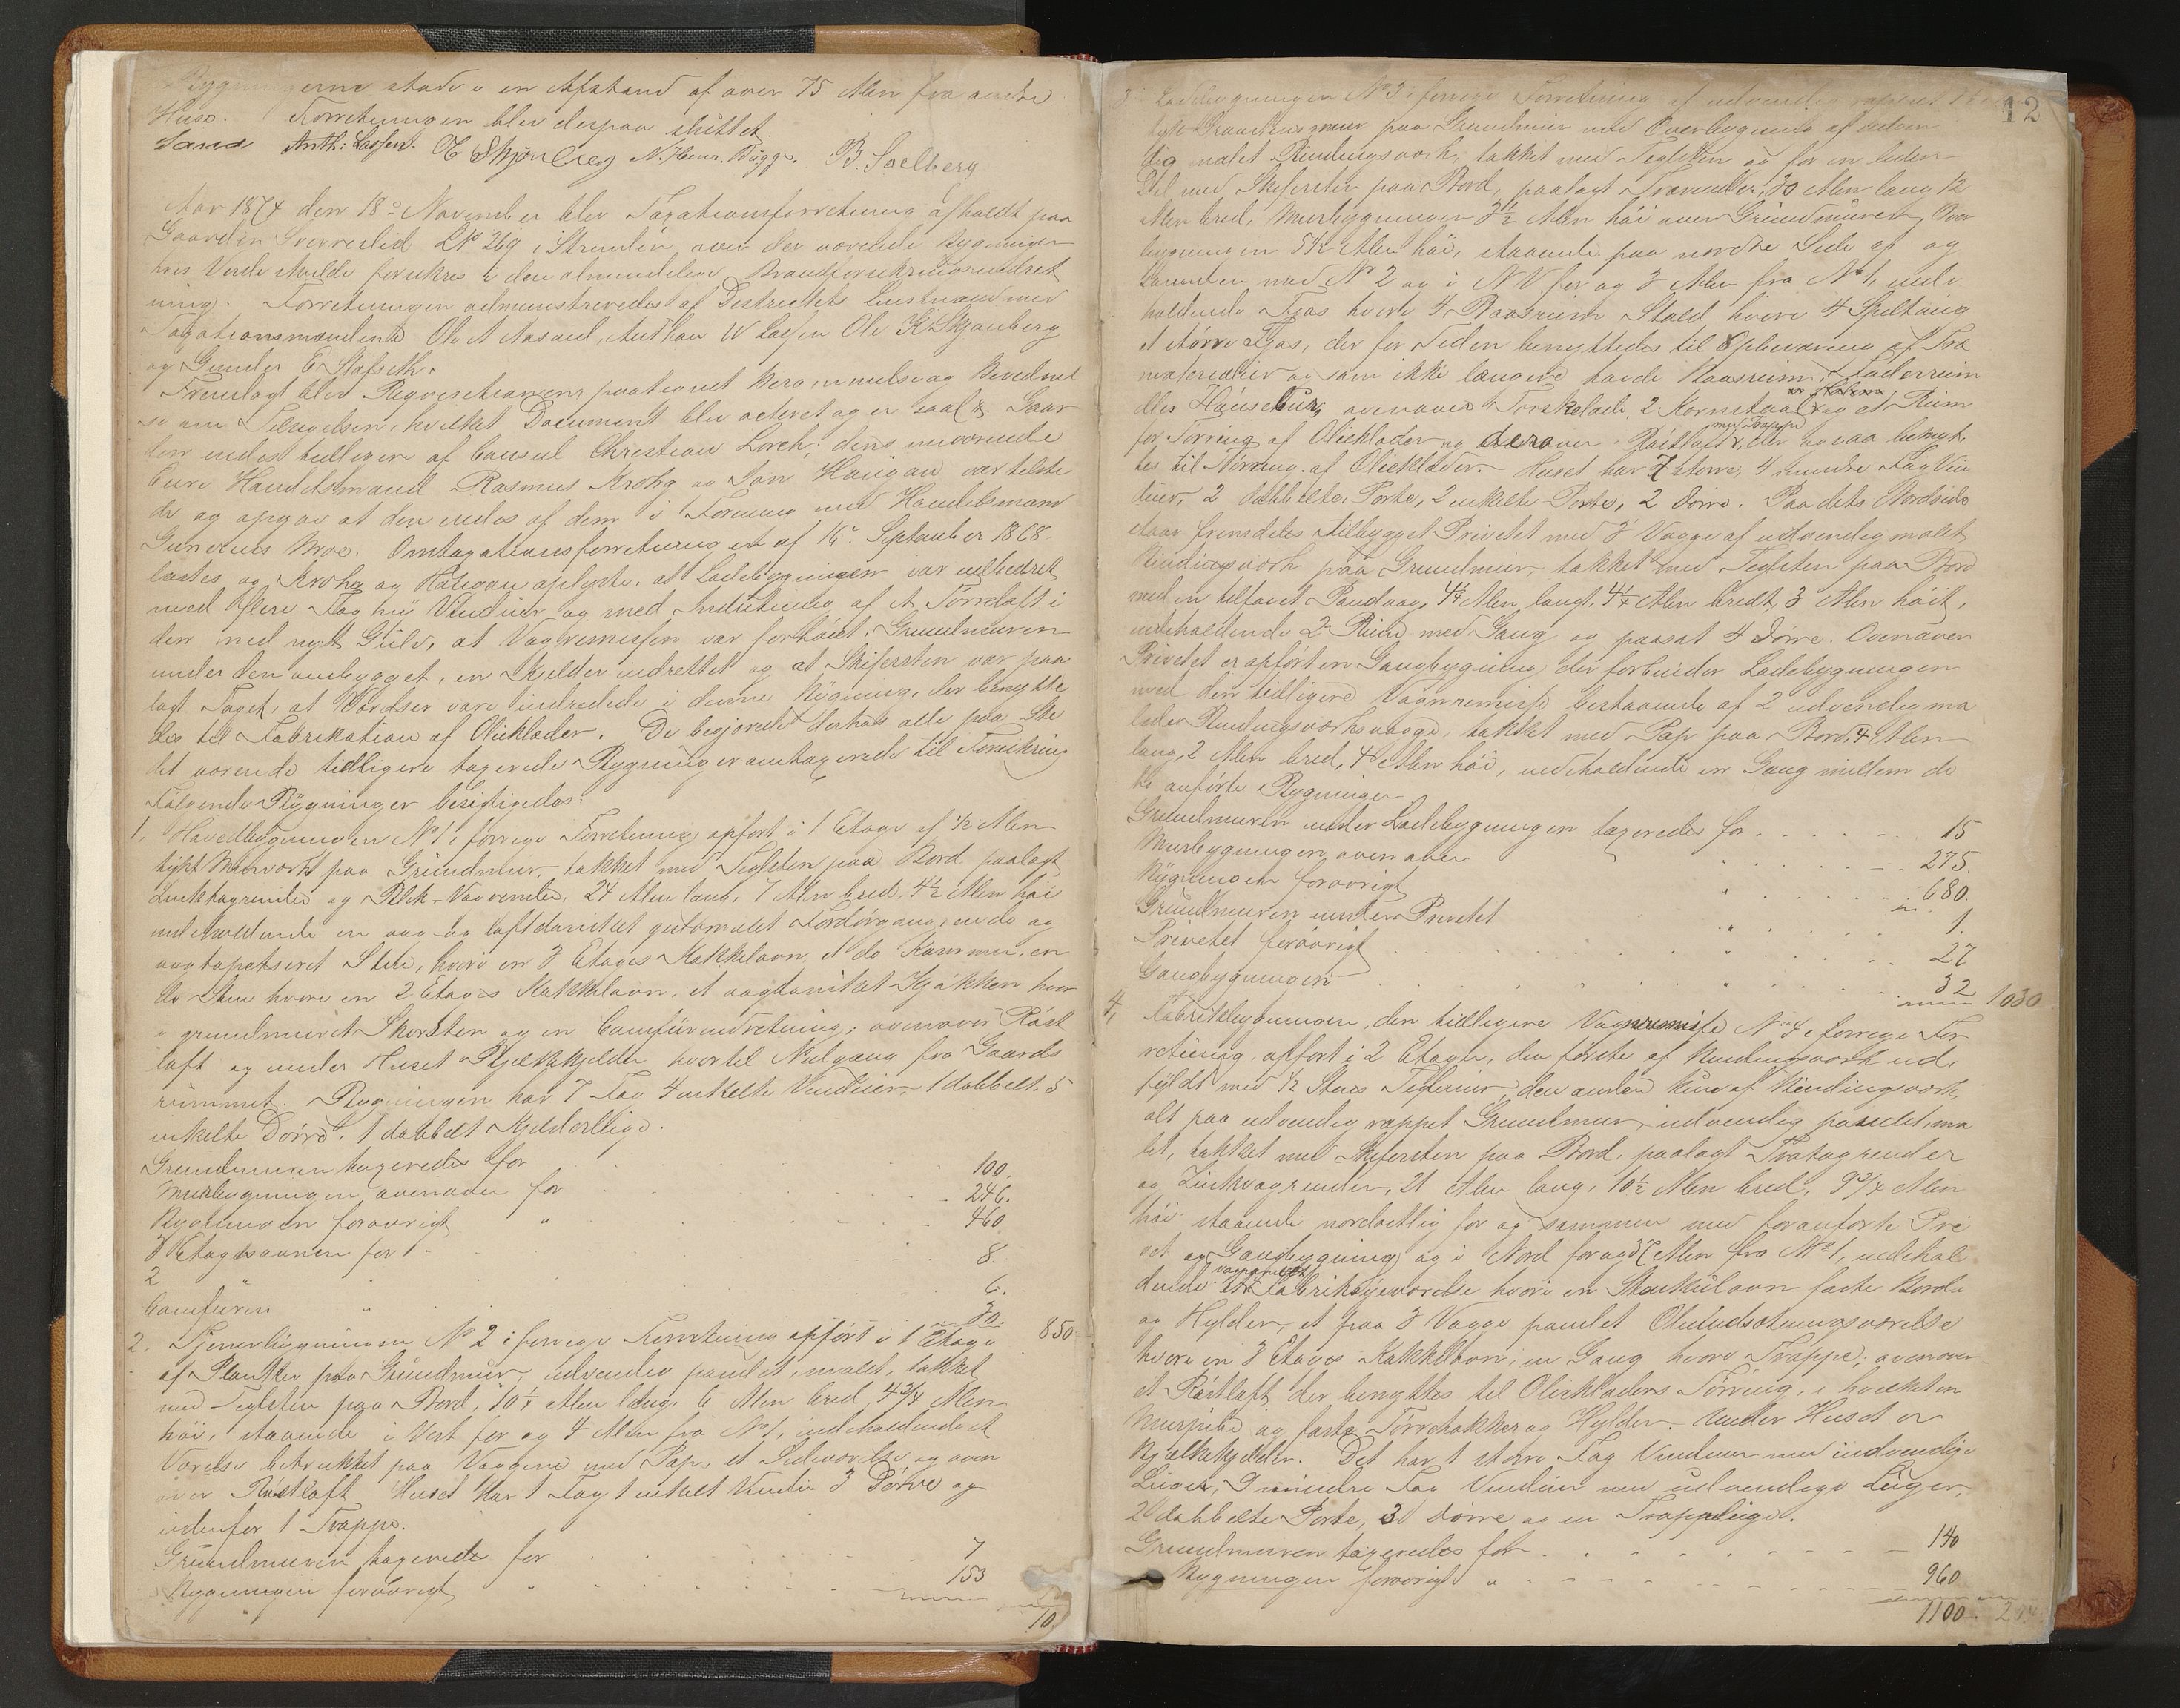 Bygningerne stode i en Afstand af over 75 Alen fra andre
Huse. Forretningen blev derpaa sluttet.
Sand Anth: Lassen. O E Skjønberg N. Henr. Bügge. B. Soelberg
Aar 1874 den 18de November blev Taxationsforretning afholdt paa
Gaarden Sverreslid LNo 269 i Strinden, over der værende Bygninger
hvis Værdi skulde forsikres i den almindelige Brandforsikringsindret
ning. Forretningen administreredes af Distriktets Lensmand med
Taxationsmændene Ole A Aasand, Anthon W Lassen Ole K Skjønberg
og Gunder E Stafseth.
Fremlagt blev Reqvisitionen paategnet Berammelse og Bevidnel
se om Tilsigelsen, hvilket Document blev acteret og er saal. Gaar
den eiedes tidligere af Consul Christian Lorck; dens nuværende
Eiere Handelsmand Rasmus Krohg og Jon Haugan var tilste
de og opgav at den eiedes af dem i Forening med Handelsmand
Gunerius Moe. Omtaxationsforretningen af 16de September 1868
læstes og Krohg og Haugan oplyste, at Ladebygningen var udbedret
med flere Fag nye Vinduer og med Indretning af et Tørreloft i
den med nyt Gulv, at Vognremissen var forhøiet, Grundmuren
under den ombygget, en Kjelder indrettet og at Skifersten var paa
lagt Taget, at Værelser vare indredede i denne Bygning, der benytte
des til Fabrikation af Olieklæder. De begjærede derhos alle paa Ste
det værende tidligere taxerede Bygninger omtaxerede til Forsikring
Følgende Bygninger besigtigedes:
1. Hovedbygningen No 1 i forrige Forretning, opført i 1 Etage af 1/2 Alen
tykt Murværk paa Grundmur, takket med Teglsten paa Bord paalagt
Zinktagrender og Blik-Vagrender, 24 Alen lang, 7 Alen bred, 4 1/2 Alen høi
indeholdende en væg- og loftdanket gulvmalet Fordørgang, en do og
vægtapetseret Stue, hvori en 3 Etages Kakkelovn, et do Kammer, en
do Stue hvori en 2 Etages Kakkelovn, et vægdanket Kjøkken hvor
i grundmuret Skorsten og en Comfürindretning; ovenover Røst
loft og under Huset Bjelkekjelder hvortil Nedgang fra Gaards
rummet. Bygningen har 7 Fag 4 enkelte Vinduer, 1 dobbelt, 5
enkelte Dørre, 1 dobbelt Kjelderluge.
Grundmuren taxeredes for 100.
Murbygningen ovenover for 246.
Bygningen forøvrigt " 460
3 Etagesovnen for 8.
2 " 6.
Comfuren " 30. 850
2. Tjenerbygningen No 2 i forrige Forretning opført i 1 Etage
af Planker paa Grundmur, udvendig panelet, malet, takket
med Teglsten paa Bord, 10 1/2 Alen lang, 6 Alen bred, 4 3/4 Alen
høi, staaende i Vest for og 4 Alen fra No 1, indeholdende et
Værelse betrukket paa Væggene med Pap, et Sideværelse og oven
over Røstloft. Huset har 1 Fag 1 enkelt Vindu 3 Dørre og
indenfor 1 Trappe.
Grundmuren taxeredes for 7
Bygningen forøvrigt " 153
12
3. Ladebygningen No 3 i forrige Forretning af udvendig rappet 1/2
tykt Graastensmuur paa Grundmur med Overbygning af udven
dig malet Bindingsværk, takket med Teglsten og for en liden
Del med Skifersten paa Bord, paalagt Trærender, 30 Alen lang 12
Alen bred, Murbygningen 3 1/2 Alen høi over Grundmuren, Over
bygningen 5 1/2 Alen høi, staaende paa nordre Side af og
sammen med No 2 og i NV for og 3 Alen fra No 1, inde
holdende Fjøs hvori 4 Baasrum Stald hvori 4 Spiltoug
et større Fjøs, der for Tiden benyttedes til Opbevaring af Træ
materialier og som ikke længere havde Baasrum, Foderrum
eller Hønsehus, ovenover Tørskelade, 2 Kornstaal og et Rum
for Tørring af Olieklæder og derover Røstloft med Trappe, der ogsaa benyt
tes til Tørring af Olieklæder. Huset har 7 større, 4 mindre Fag Vin
duer, 2 dobbelte Porte, 2 enkelte Porte, 2 Dørre. Paa dets Nordside
staar fremdeles tilbygget Privetet med 3 Vægge af udvendig malet
Bindingsværk paa Grundmur, takket med Teglsten paa Bord
med en tilføiet Bindvæg, 4 1/4 Alen langt, 4 1/4 Alen bredt, 3 Alen høit,
indeholdende 2 Rum med Gang og paasat 4 Dørre. Ovenover
Privetet er opført en Gangbygning der forbinder Ladebygningen
med den tidligere Vognremisse bestaaende af 2 udvendig ma
lede Bindingsværksvægge, takket med Pap paa Bord, 4 Alen
lang, 2 Alen bred, 4 Alen høi, indeholdende en Gang mellem de
to anførte Bygninger
Grundmuren under Ladebygningen taxeredes for 15
Murbygningen ovenover " 275.
Bygningen forøvrigt " 680.
Grundmuren under Privetet " 1.
Privetet forøvrigt " 27
Gangbygningen " 32 1030
4. Fabrikbygningen, den tidligere Vognremisse No 4 i forrige For
retning, opført i 2 Etager, den første af Bindingsværk ud
fyldt med 1/2 Stens Teglmur, den anden kun af Bindingsværk,
alt paa udvendig rappet Grundmur, udvendig panelet, ma
let, takket med Skifersten paa Bord, paalagt Trætagrender
og Zinkvagrender, 21 Alen lang, 10 1/2 Alen bred, 9 3/4 Alen
høi staaende nordostlig for og sammen med foranførte Pri
vet og Gangbygning og i Nord for og 37 Alen fra No 1, indehol
dende et vægpanelet Fabrikværelse hvori en Skaktelovn faste Borde
og Hylder, et paa 3 Vægge panelet Olieindsætningsværelse
hvori en 3 Etages Kakkelovn, en Gang hvori Trappe; ovenover
et Røstloft, der benyttes til Olieklæders Tørring, i hvilket en
Murpibe og faste Tørrestokker og Hylder. Under Huset er
Bjelkekjelder. Det har 1 større Fag Vinduer med indvendige
Luger, 9 mindre Fag Vinduer med udvendige Luger,
2 dobbelte Porte, 3 Dørre og en Trappeluge.
Grundmuren taxeredes for 140
Bygningen forøvrigt " 960
1100